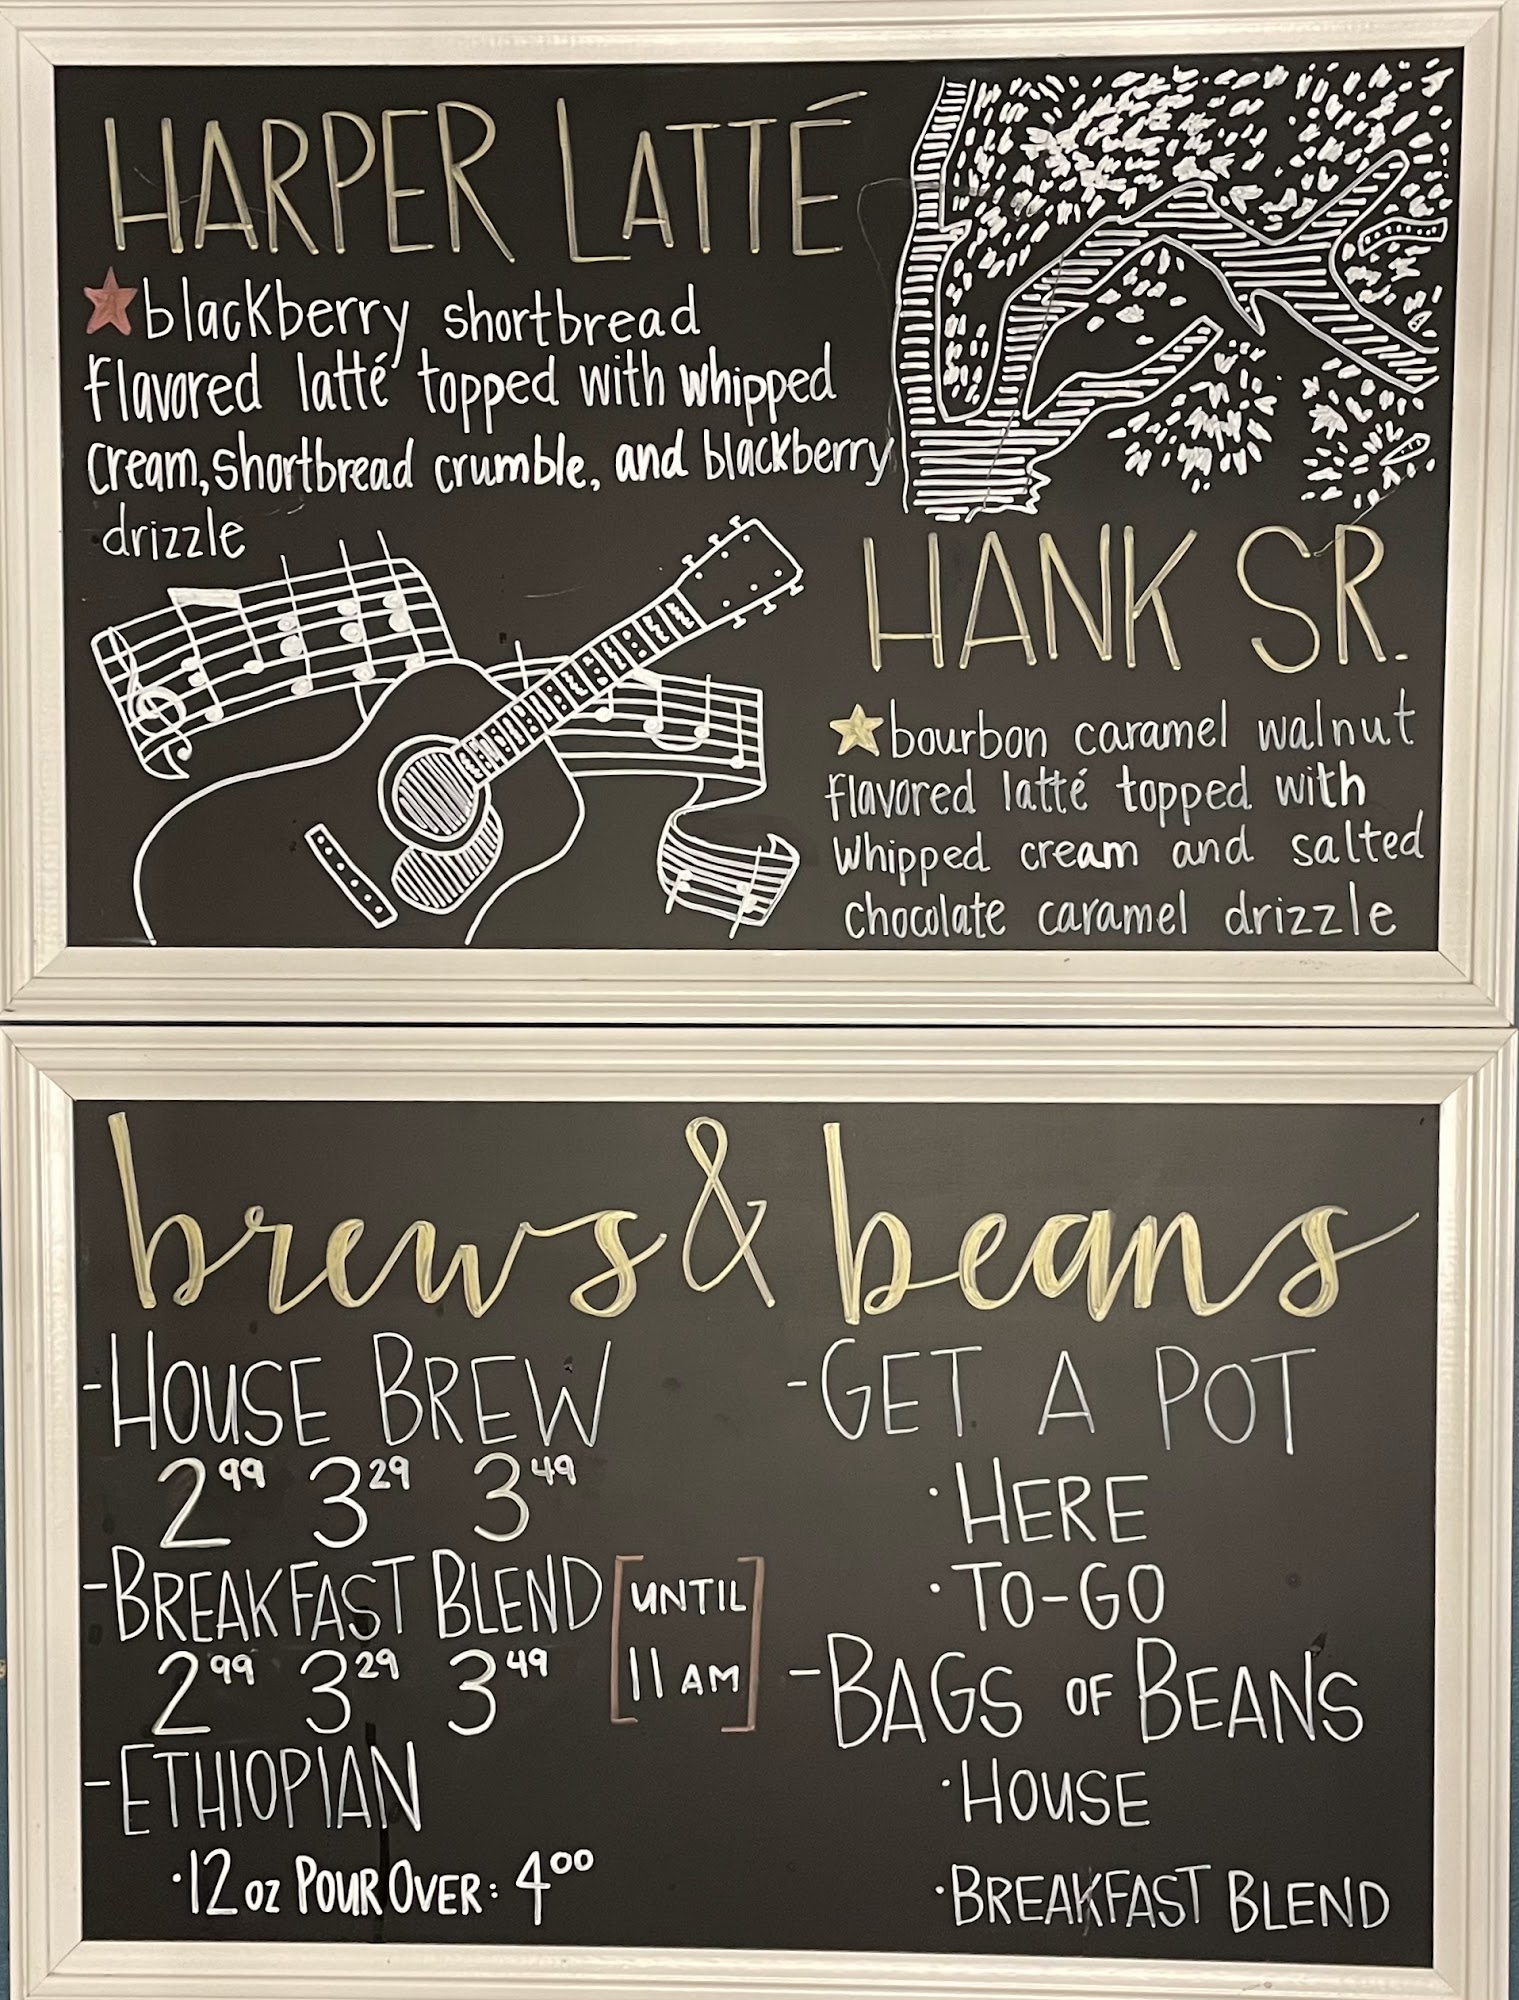 HARPER LATTÉ
blackberry shortbread
flavored latté topped with whipped
cream, shortbread crumble, and blackberry
drizzle
HANK SR.
bourbon caramel walnut
flavored latté topped with
whipped cream and salted
chocolate caramel drizzle
brews & beans
-HOUSE BREW
2.99 3.29 3.49
-BREAKFAST BLEND [UNTIL
11 AM]
2.99 3.29 3.49
-ETHIOPIAN
·12 oz POUR OVER: 4.00
-GET A POT
·HERE
·TO-GO
-BAGS OF BEANS
·HOUSE
·BREAKFAST BLEND